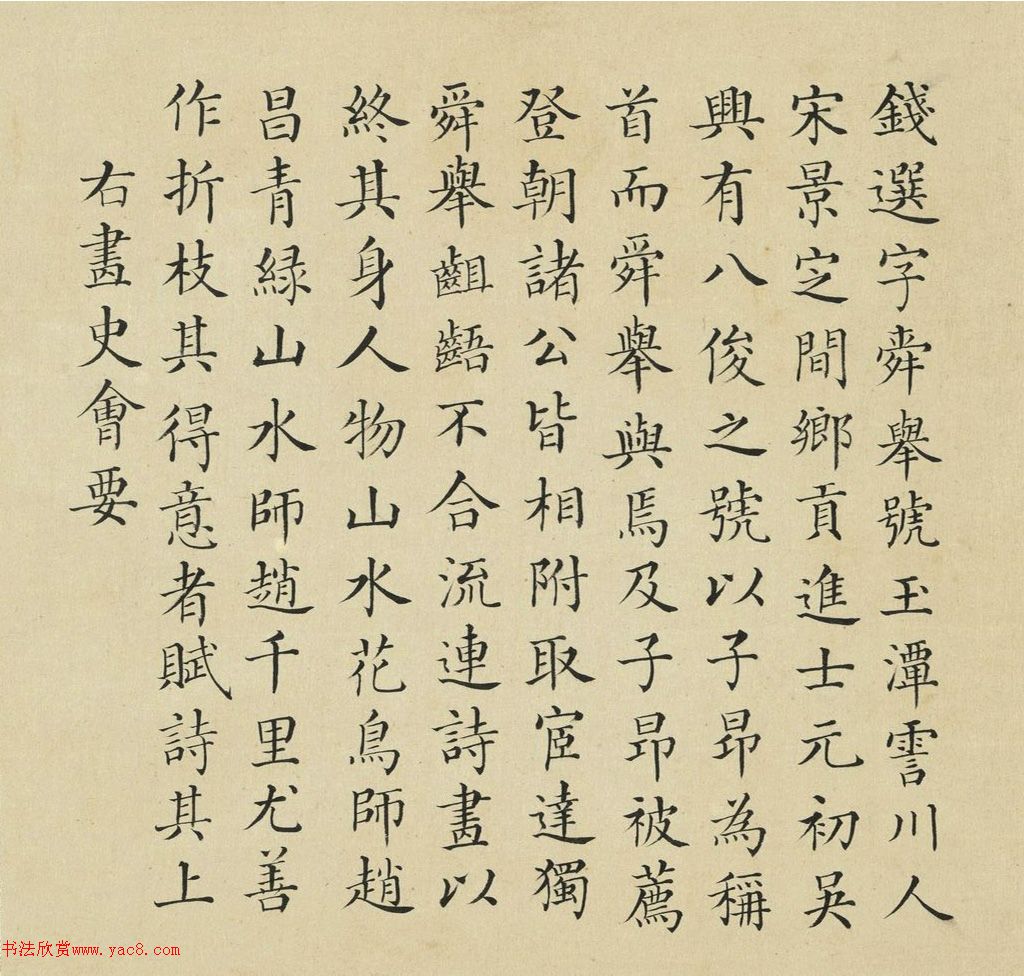 錢選字舜舉號玉潭霅川人
宋景定間鄉貢進士元初吳
興有八俊之號以子昂為稱
首而舜舉與焉及子昂被薦
登朝諸公皆相附取宦達獨
舜舉齟齬不合流連詩畫以
終其身人物山水花鳥師趙
昌青綠山水師趙千里尤善
作折枝其得意者賦詩其上
右畫史會要
书法欣赏www.yac8.com